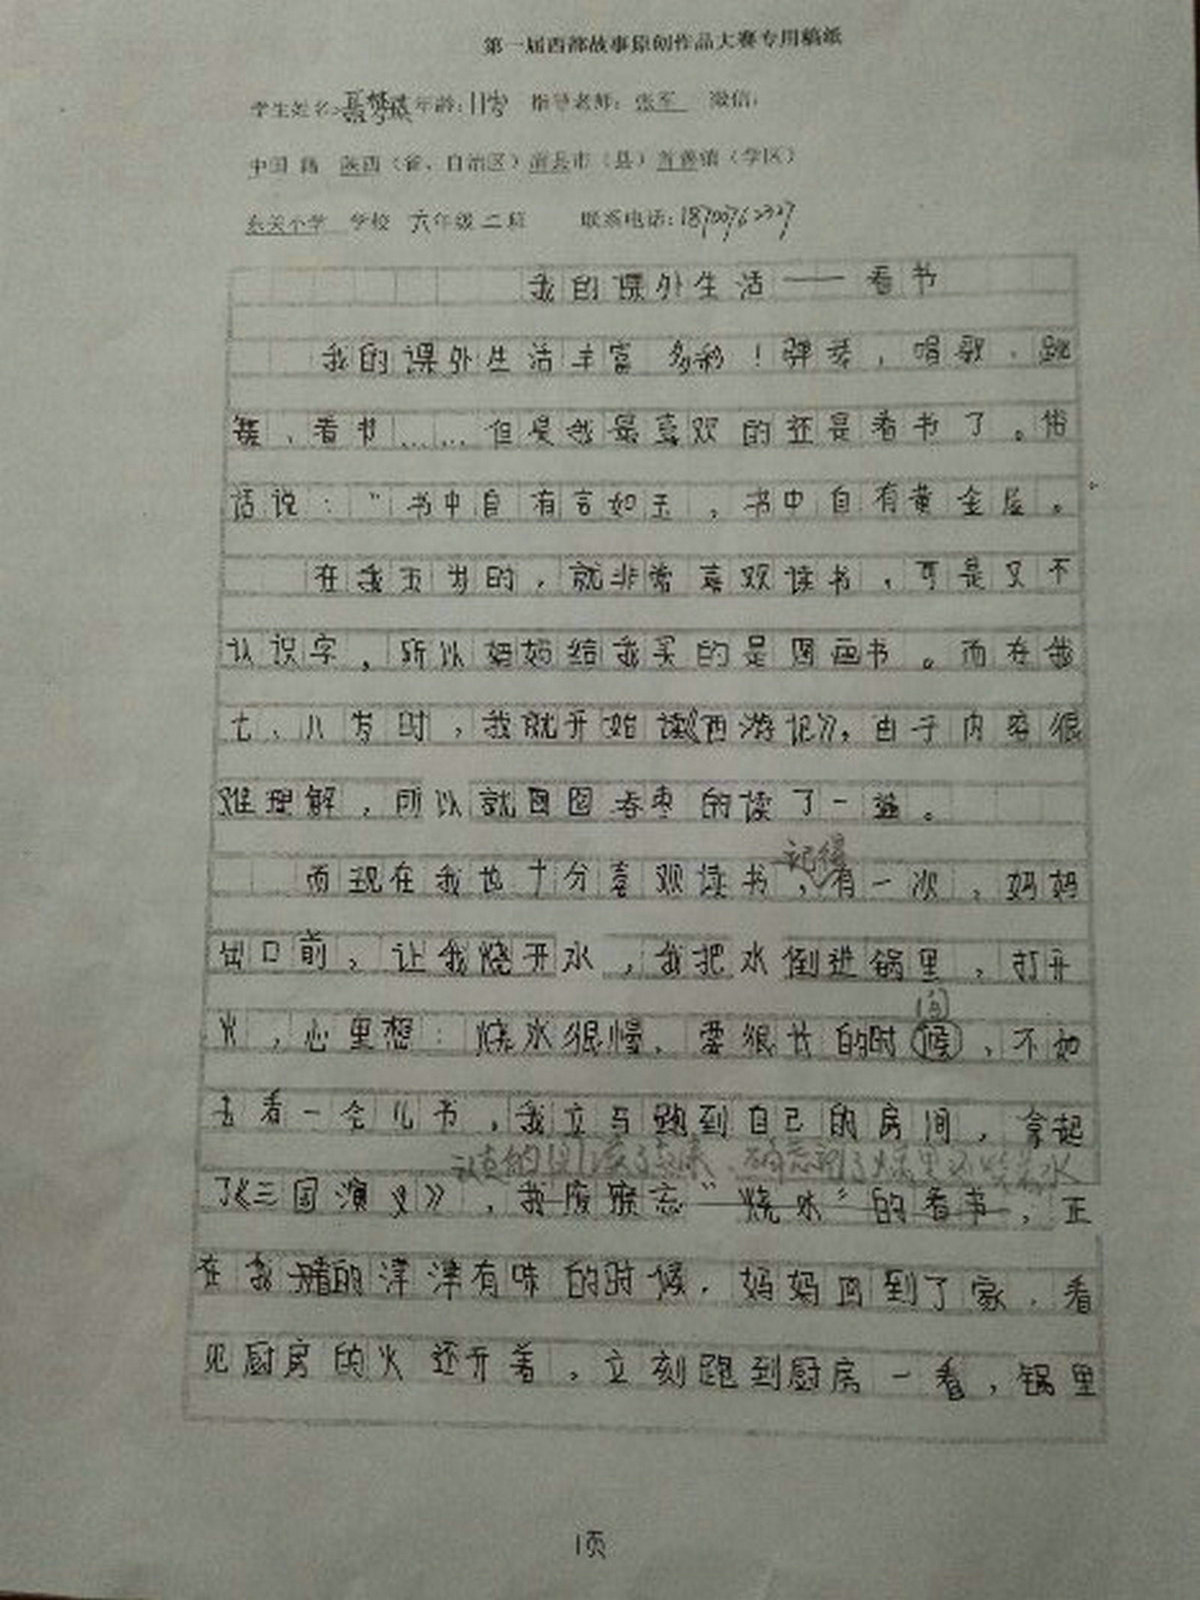 第一届西部故事原创作品大赛专用稿纸
学生姓名: 年龄:11岁 指导老师: 张军 微信:
中国 籍 陕西(省、自治区)蒲县市(县) 镇(学区)
东关小学 学校 六年级二班 联系电话:18700762327
我的课外生活——看书
我的课外生活丰富多彩!弹琴,唱歌、跳
舞、看书……但是我最喜欢的还是看书了。俗
话说:“书中自有言如玉,书中自有黄金屋。
在我五岁的,就非常喜欢读书,可是又不
认识字,所以妈妈给我买的是图画书。而在我
七、八岁时,我就开始读《西游记》,由于内容很
难理解,所以就囫囵吞枣的读了一遍。
记得
而现在我也十分喜欢读书,有一次,妈妈
出门前,让我烧开水,我把水倒进锅里,打开
间
火,心里想:烧水很慢,要很长的时候,不如
去看一会儿书,我立马跑到自己的房间,拿起
读的 忘了 水
了《三国演义》,我废寝忘“烧水”的看书,正
在我 的津津有味的时候,妈妈回到了家,看
见厨房的火还开着,立刻跑到厨房一看,锅里
1页